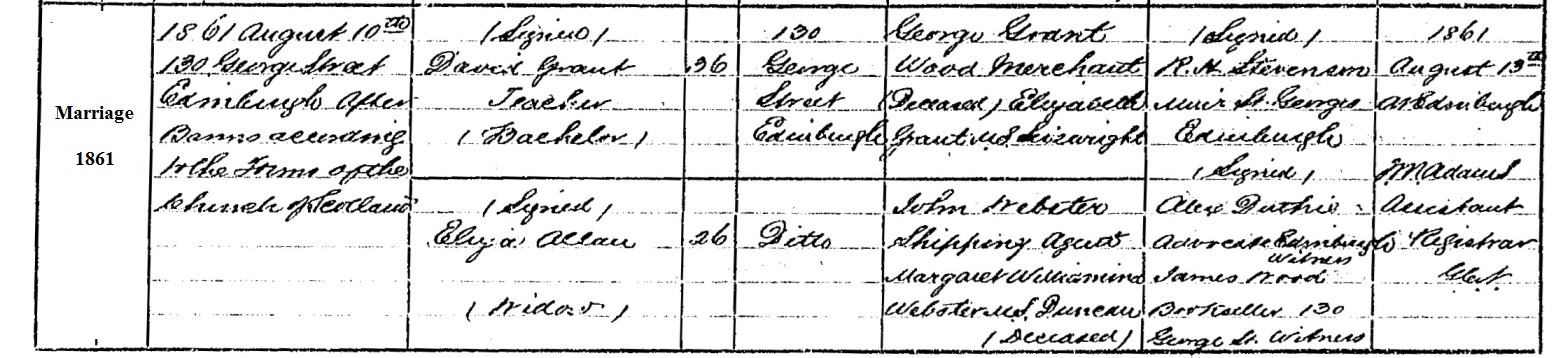 Marriage
1861
1861 August 10th
130 George Street
Edinburgh After
Banns according
to the Forms of the
Church of Scotland
(Signed)
David Grant
Teacher
(Bachelor)
36
130
George
Street
Edinburgh
George Grant
Wood Merchant
(Deceased) Elizabeth
Grant M.S.
(Signed)
R. H. Stevenson
Minr St. Georges
Edinburgh
1861
August 13th
at Edinburgh
(Signed)
Eliza Allan
(Widow)
26
Ditto
John Webster
Shipping Agent
Margaret Williamina
Webster M.S. Duncan
(Deceased)
(Signed)
Alex Duthie
Advocate Edinburgh
Witness
James Wood
Bookseller 130
George St. Witness
J.M. Adams
Assistant
Registrar